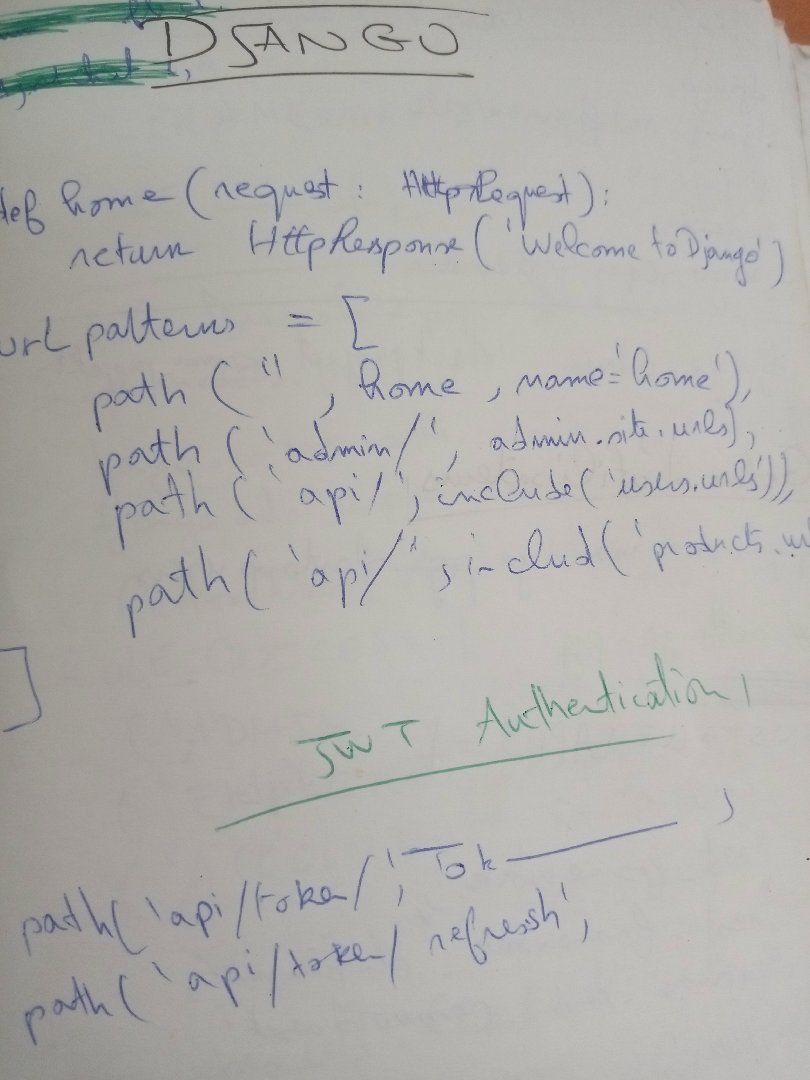 DJANGO
def home (request : HttpRequest):
return HttpResponse ('Welcome to Django')
url patterns = [
path ('' , home , name='home'),
path ('admin/', admin.site.urls),
path ('api/', include('users.urls')),
path ('api/' , includ('products.ur
]
JWT Authentication
path('api/token/', Tok
path('api/token/ refressh',